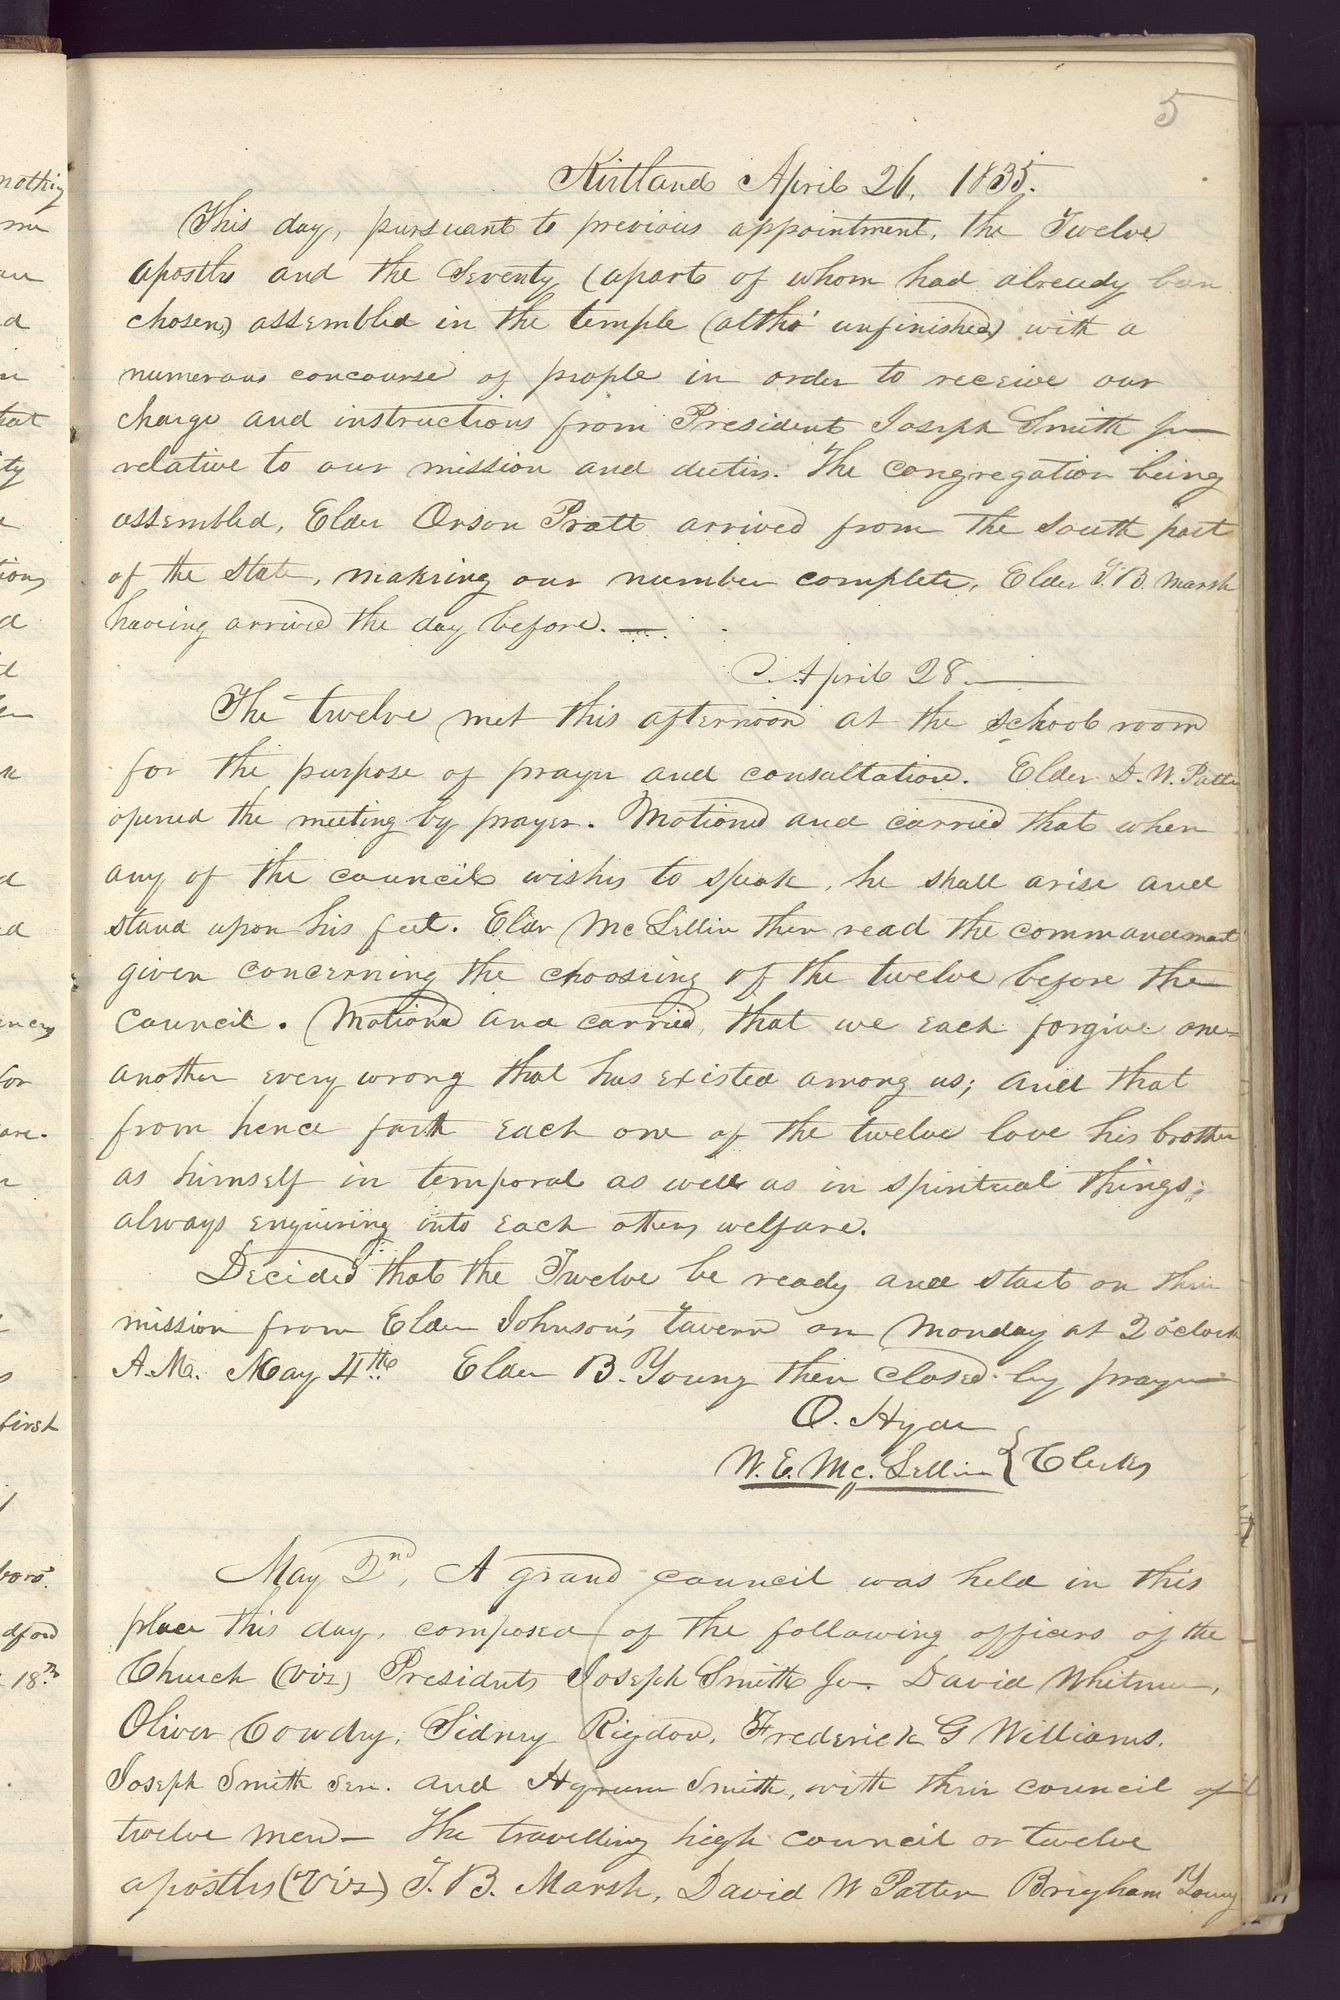 5
Kirtland April 26, 1835.
This day, pursuant to previous appointment, the Twelve
apostles and the Seventy (apart of whom had already been
chosen) assembled in the temple (altho' unfinished) with a
numerous concourse of people in order to receive our
charge and instructions from President Joseph Smith Jr
relative to our mission and duties. The congregation being
assembled, Elder Orson Pratt arrived from the South part
of the State, makeing our number complete, Elder T. B. Marsh
haveing arrived the day before. —
April 28. —
The twelve met this afternoon at the school room
for the purpose of prayer and consultation. Elder D. W. Patten
opened the meeting by prayer. Motioned and carried that when
any of the council wishes to speak, he shall arise and
stand upon his feet. Elder McLellin then read the commandment
given concerning the choosing of the twelve before the
council. Motioned and carried, that we each forgive one-
another every wrong that has existed among us; and that
from hence forth each one of the twelve love his brother
as himself in temporal as well as in spiritual things;
always enquiring into each others welfare.
Decided that the Twelve be ready and start on their
mission from Elder Johnson's tavern on Monday at 2 o'clock
A.M. May 4th Elder B. Young then closed by prayer
O. Hyde
W. E. Mc. Lellin } Clerks
May 2nd, A grand council was held in this
place this day, composed of the following officers of the
Church (viz) Presidents Joseph Smith Jr. David Whitmer,
Oliver Cowdry, Sidney Rigdon, Frederick G Williams.
Joseph Smith Sen. and Hyrum Smith, with their council of
twelve men — The travelling high council or twelve
apostles (viz) T. B. Marsh, David W Patten Brigham Young